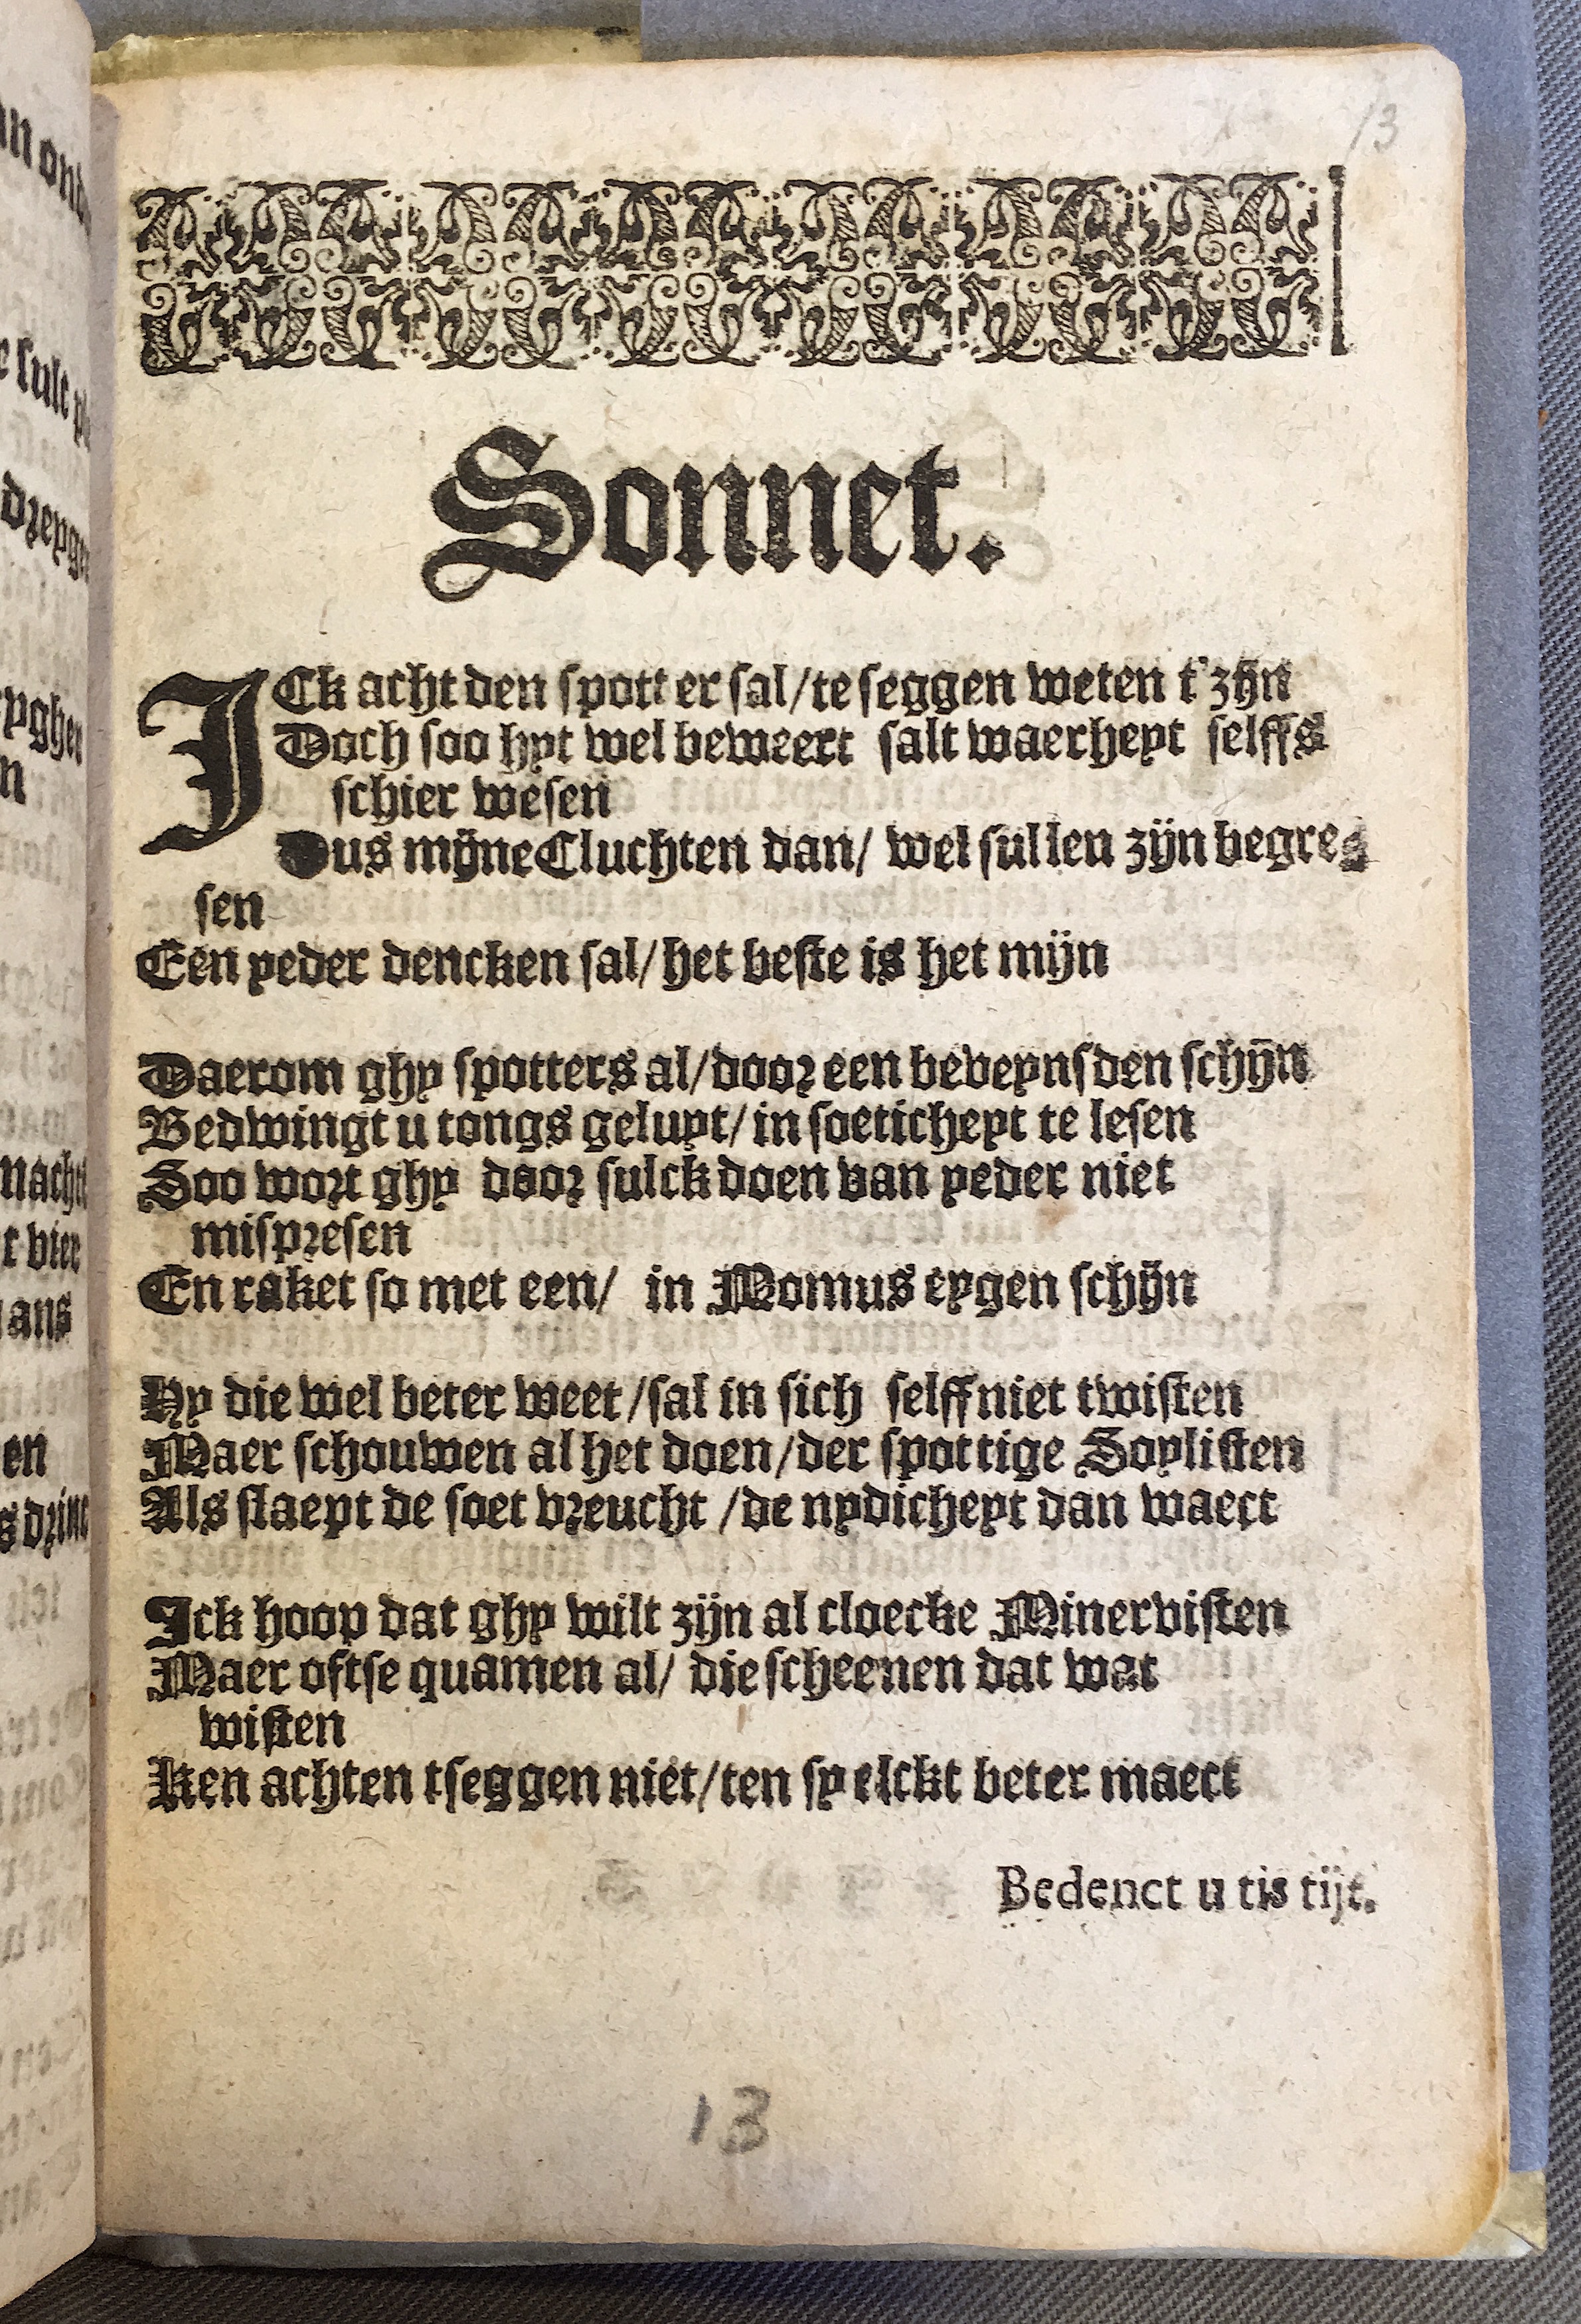 13
Sonnet.
ICk acht den spotter sal/te seggen weten t'zijn
Doch soo hyt wel beweert salt waerheyt selffs
schier wesen
Dus mijne Cluchten dan/ wel sullen zijn begre
sen
Een yeder dencken sal/het beste is het mijn
Daerom ghy spotters al/door een beveynsden schijn
Bedwingt u tongs geluyt/in soeticheyt te lesen
Soo wort ghy door sulck doen van yeder niet
mispresen
En raket so met een/ in Momus eygen schijn
Hy die wel beter weet/sal in sich selff niet twisten
Maer schouwen al het doen/der spottige Soylisten
Als slaept de soet vreucht /de nydicheyt dan waect
Ick hoop dat ghy wilt zijn al cloecke Minervisten
Maer oftse quamen al/ die scheenen dat wat
wisten
Ken achten tseggen niet/ten sy elckt beter maect
Bedenct u tis tijt.
13